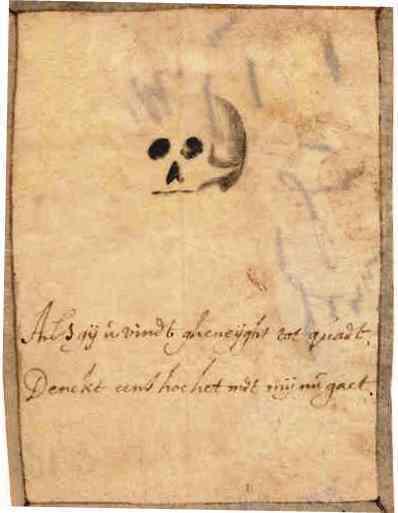 Als gij u vindt gheneijght tot quadt,
Denckt eens hoe het mdt mij nu gaet.